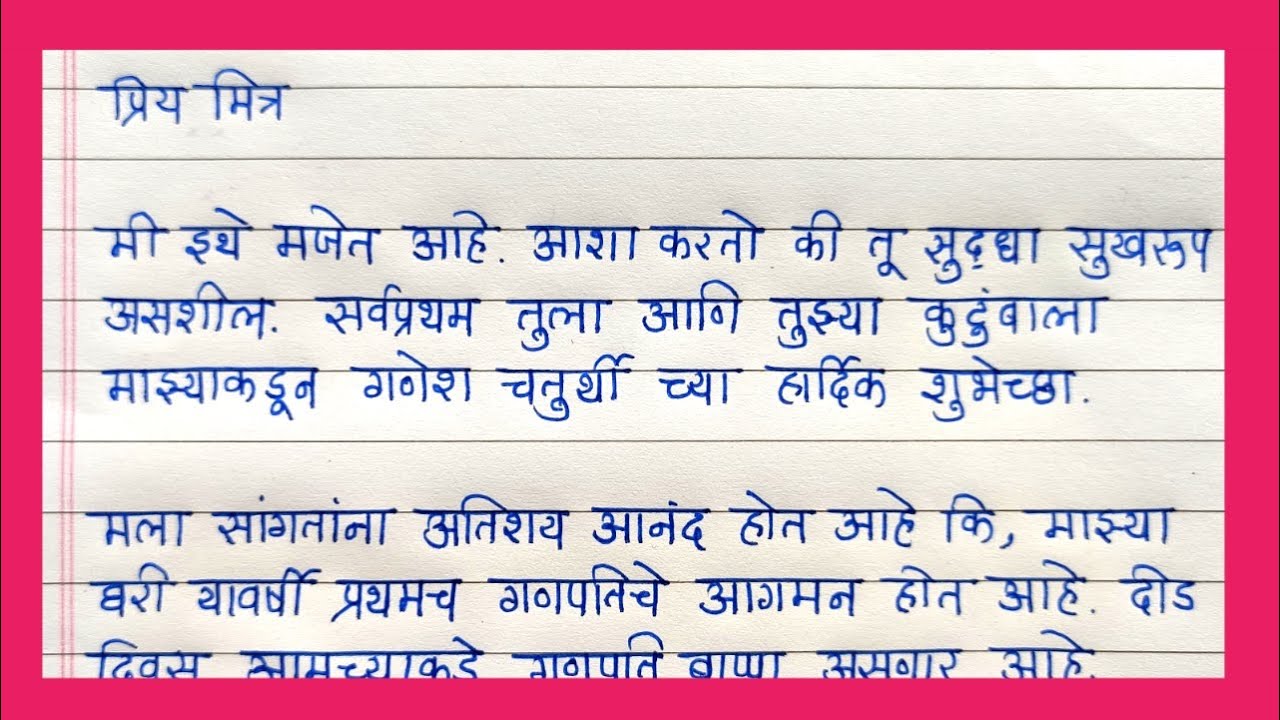 प्रिय मित्र
मी इथे मजेत आहे. आशा करतो की तू सुद्धा सुखरूप
असशील. सर्वप्रथम तुला आणि तुझ्या कुटुंबाला
माझ्याकडून गणेश चतुर्थी च्या हार्दिक शुभेच्छा.
मला सांगतांना अतिशय आनंद होत आहे कि, माझ्या
घरी यावर्षी प्रथमच गणपतिचे आगमन होत आहे. दीड
दिवस आमच्याकडे गणपति बाप्पा असणार आहे.